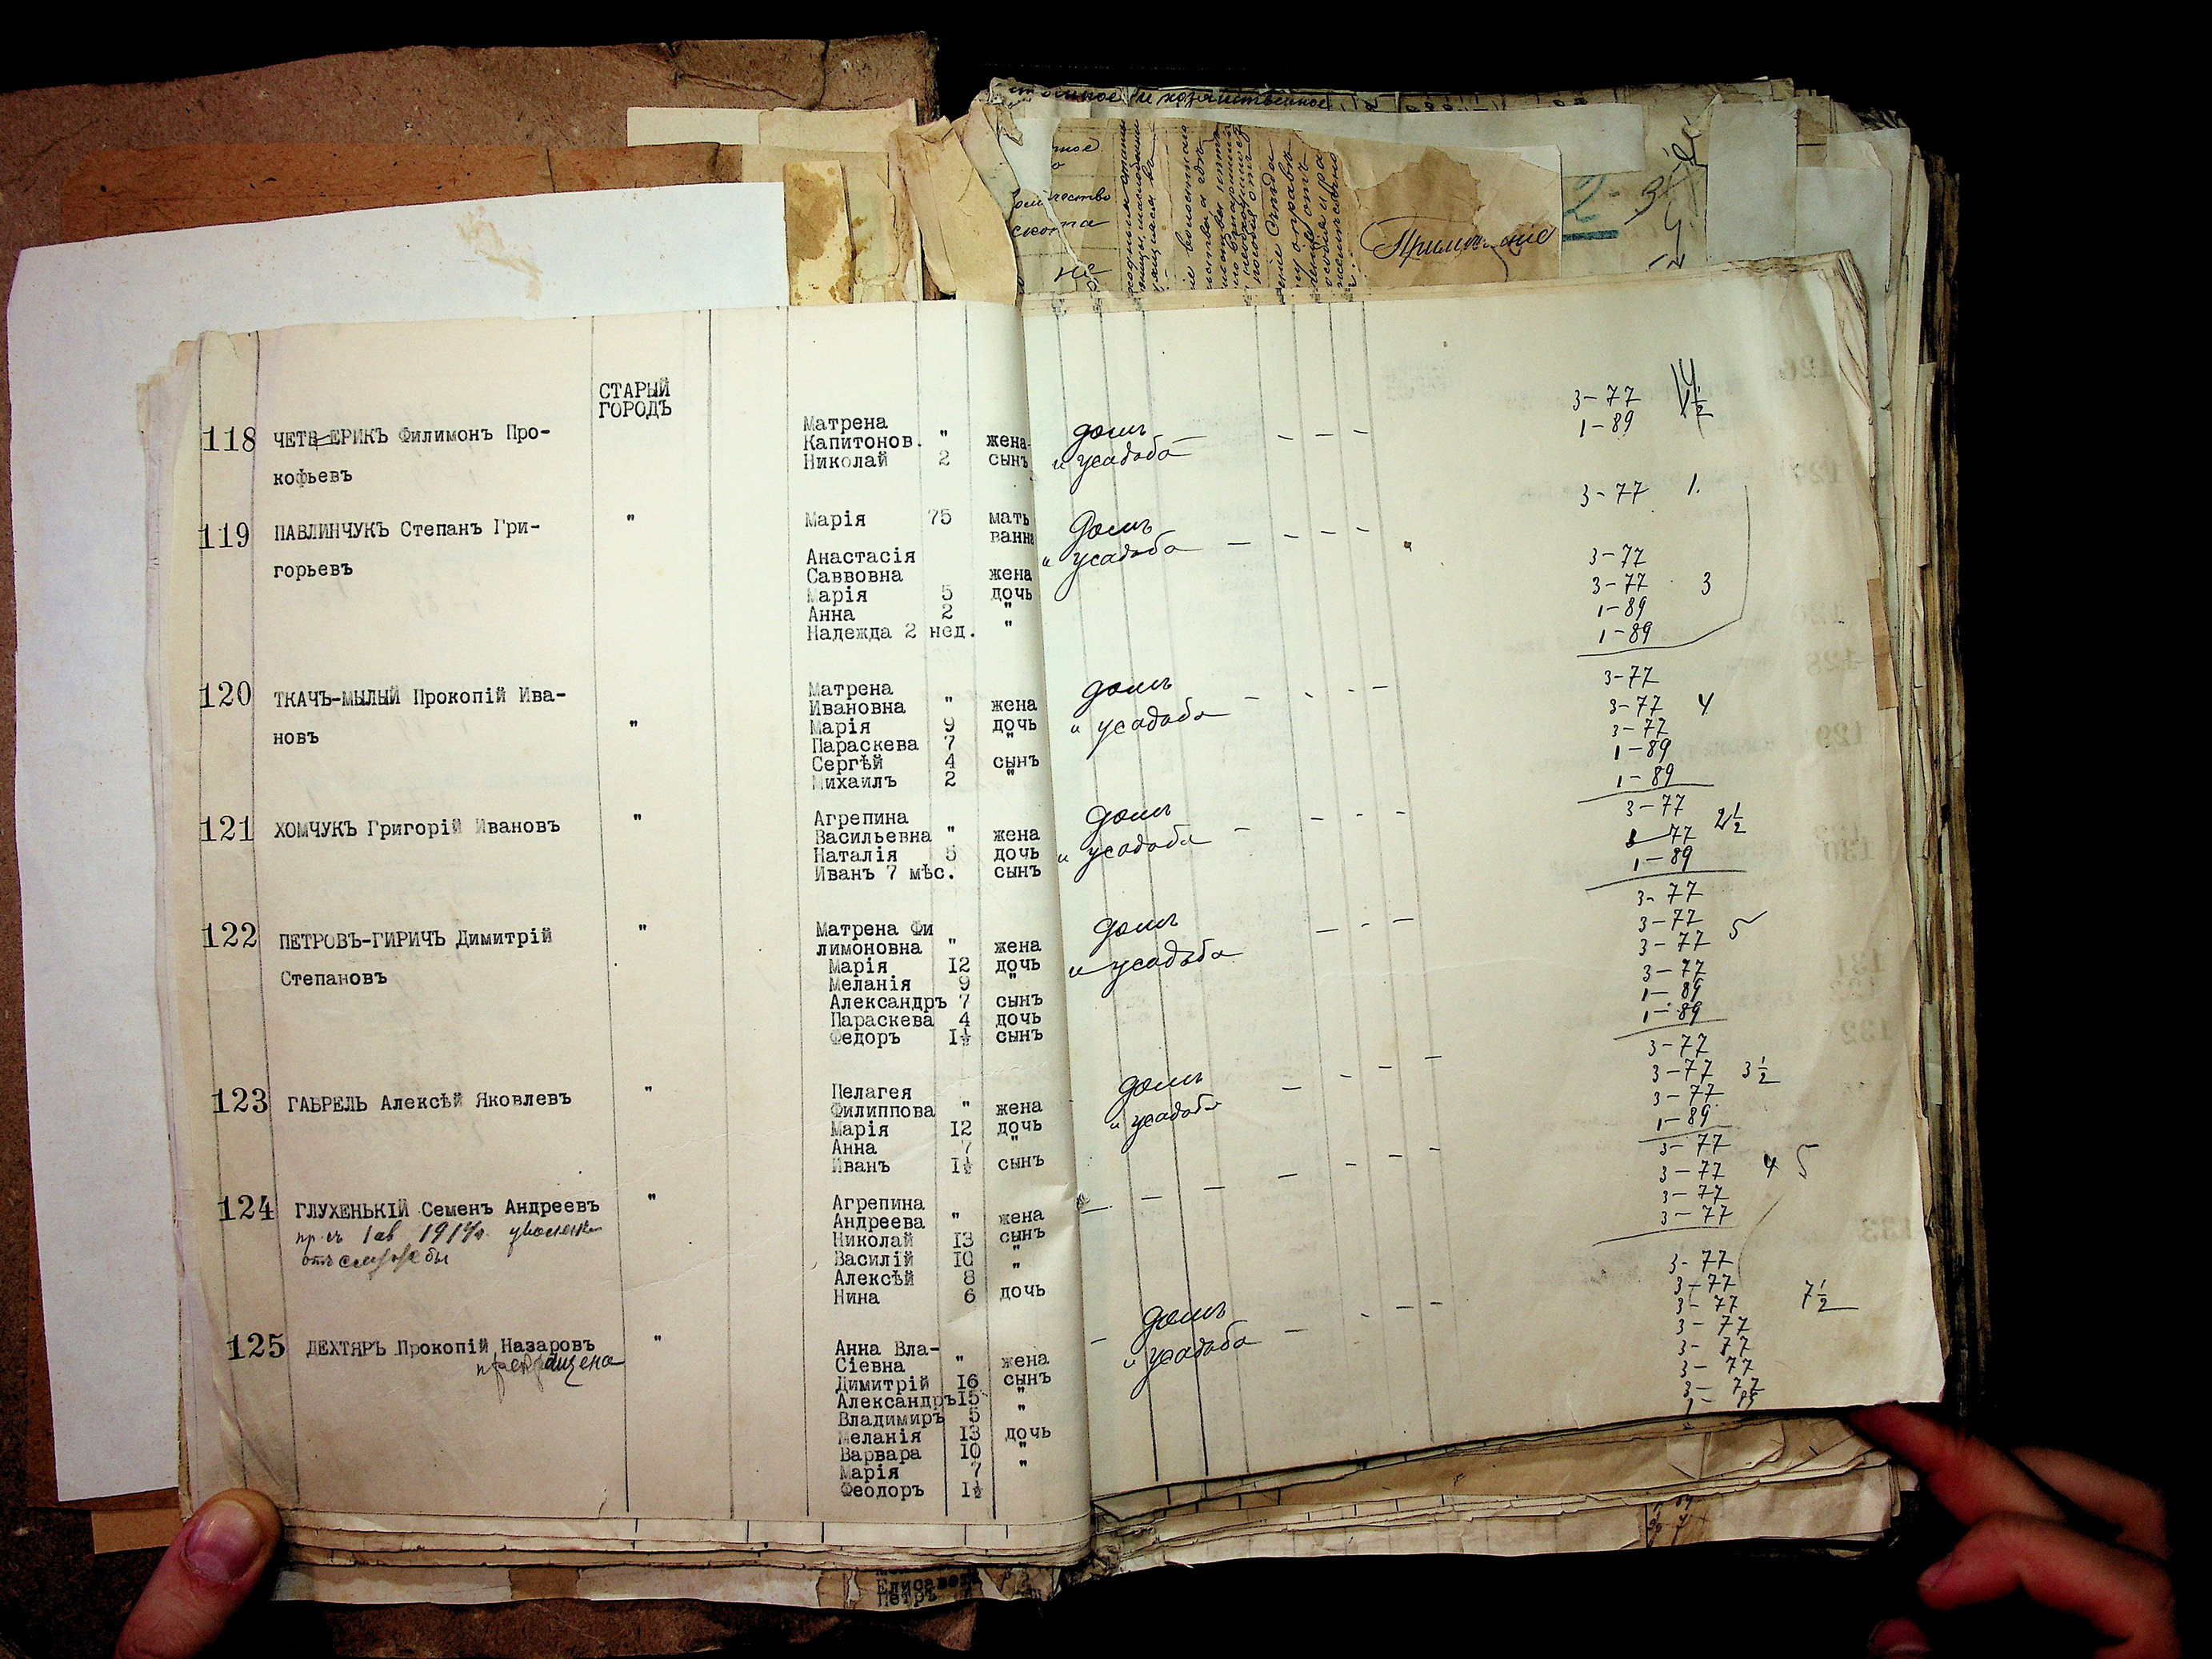 ственное и хозяйственное
Примечание
СТАРЫЙ
ГОРОДЪ
118 ЧЕТВ-ЕРИКЪ Филимонъ Про-
кофьевъ
Матрена
Капитонов. " жена
Николай 2 сынъ
домъ
и усадьба
3-77
1-89
1½
119 ПАВЛИНЧУКЪ Степанъ Гри-
горьевъ
"
Марія 75 мать
ванна
Анастасія
Саввовна жена
Марія 5 дочь
Анна 2 "
Надежда 2 нед. "
домъ
и усадьба
3-77 1.
3-77
3-77 3
1-89
1-89
120 ТКАЧЪ-МЫЛЫЙ Прокопій Ива-
новъ
"
Матрена
Ивановна " жена
Марія 9 дочь
Параскева 7 "
Сергѣй 4 сынъ
Михаилъ 2 "
домъ
и усадьба
3-77
3-77 4
3-77
1-89
1-89
121 ХОМЧУКЪ Григорій Ивановъ "
Агрепина
Васильевна " жена
Наталія 5 дочь
Иванъ 7 мѣс. сынъ
домъ
и усадьба
3-77
3-77 2½
1-89
122 ПЕТРОВЪ-ГИРИЧЪ Димитрій "
Степановъ
Матрена Фи
лимоновна " жена
Марія 12 дочь
Меланія 9 "
Александръ 7 сынъ
Параскева 4 дочь
Федоръ 1½ сынъ
домъ
и усадьба
3-77
3-77
3-77 5
3-77
1-89
1-89
123 ГАВРЕЛЬ Алексѣй Яковлевъ "
Пелагея
Филиппова " жена
Марія 12 дочь
Анна 7 "
Иванъ 1½ сынъ
домъ
и усадьба
3-77
3-77 3½
3-77
1-89
124 ГЛУХЕНЬКІЙ Семенъ Андреевъ "
пр. съ 1 ав 1914г. уволенъ
отъ службы
Агрепина
Андреева " жена
Николай 13 сынъ
Василій 10 "
Алексѣй 8
Нина 6 дочь
3-77
3-77 4 5
3-77
3-77
125 ДЕХТЯРЪ Прокопій Назаровъ "
прекращена
Анна Вла-
сіевна " жена
Димитрій 16 сынъ
Александръ 15 "
Владимиръ 5 "
Меланія 13 дочь
Варвара 10 "
Марія 7 "
Феодоръ 1½
домъ
и усадьба
3-77
3-77
3-77 7½
3-77
3-77
3-77
3-77
Елисавета
Петръ